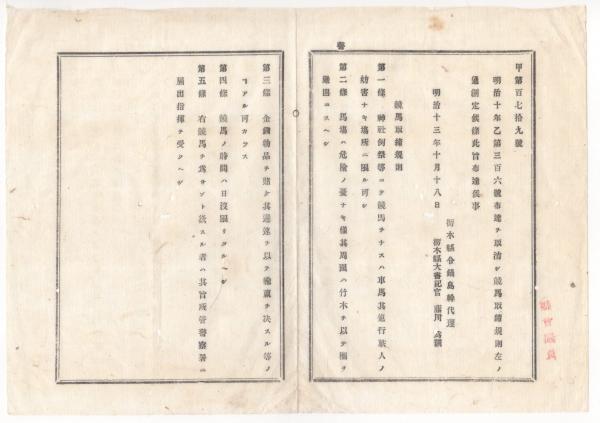 警
甲第百七拾九號
明治十年乙第三百六號布達ヲ取消シ競馬取締規則左ノ
通制定候條此旨布達候事
明治十三年十月十八日
栃木縣令鍋島幹代理
栃木縣大書記官 藤川為親
競馬取締規則
第一條 神社例祭等ニテ競馬ヲナスハ車馬其他行歩人ノ
妨害ナキ場所ニ限ル可シ
第二條 馬場ハ危險ノ憂ナキ樣其周圍ハ竹木ヲ以テ柵ヲ
ヘシ
第三條 金錢物品ヲ賭ケ其遲速ヲ以テ輸贏ヲ决スル等ノ
ヿアル可カラス
第四條 競馬ノ時間ハ日沒限リタルヘシ
第五條 右競馬ヲ為サント欲スル者ハ其旨所轄警察署ニ
届出指揮ヲ受クヘシ